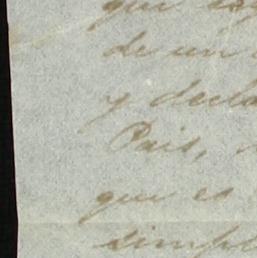 que es
de un
y decla
Pais,
que es
simple